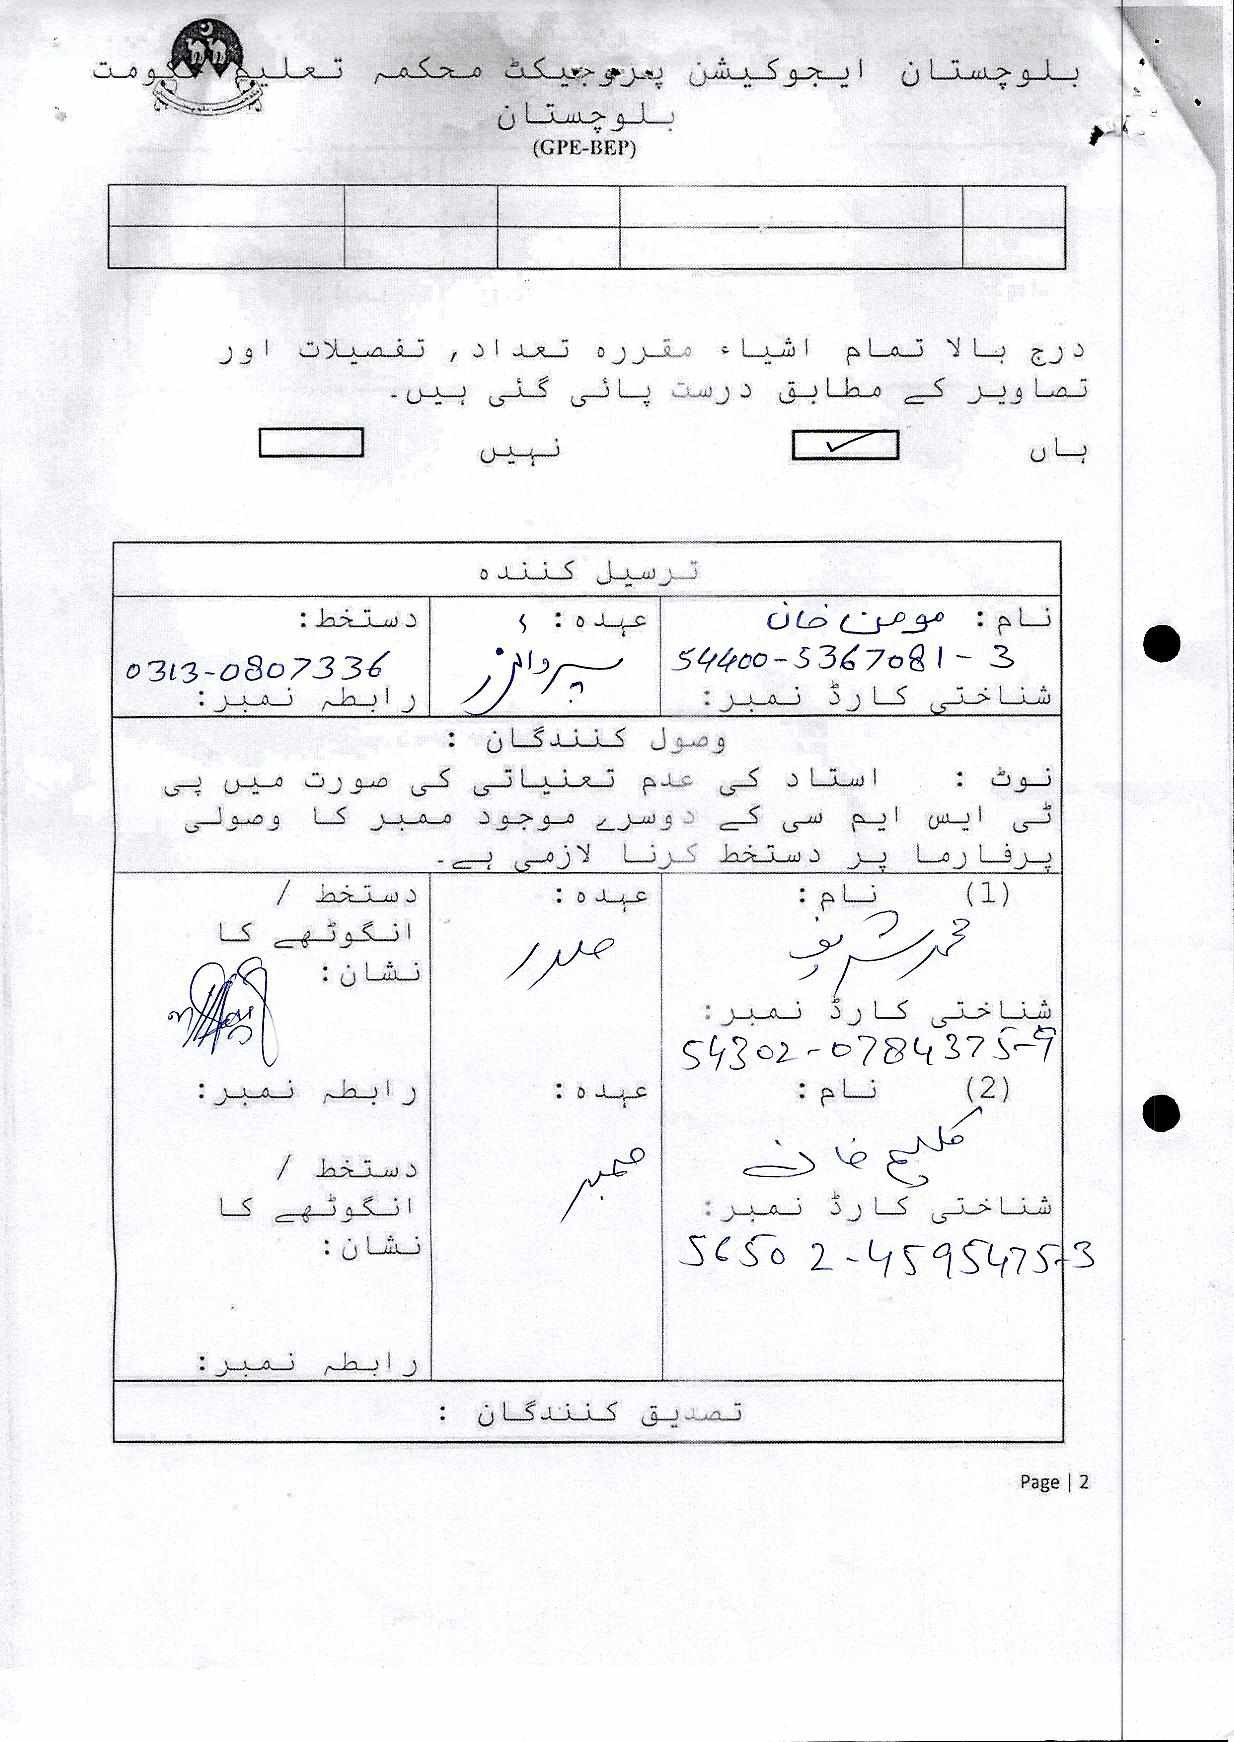 بلوچستان ایجوکیشن پروجیکٹ محکمہ تعلیم حکومت
بلوچستان
(GPE-BEP)
درج بالا تمام اشیاء مقررہ تعداد, تفصیلات اور
تصاویر کے مطابق درست پائی گئی ہیں۔
ہاں ✓ نہیں
ترسیل کنندہ
نام: مومن خان عہدہ: دستخط:
54400-5367081-3 سپروائزر 0313-0807336
شناختی کارڈ نمبر: رابطہ نمبر:
وصول کنندگان :
نوٹ : استاد کی عدم تعنیاتی کی صورت میں پی
ٹی ایس ایم سی کے دوسرے موجود ممبر کا وصولی
پرفارما پر دستخط کرنا لازمی ہے۔
(1) نام: عہدہ: دستخط /
محمد شریف صدر انگوٹھے کا
نشان:
شناختی کارڈ نمبر:
54302-0784375-9
(2) نام: عہدہ: رابطہ نمبر:
خان ممبر دستخط /
شناختی کارڈ نمبر: انگوٹھے کا
56502-4595475-3 نشان:
رابطہ نمبر:
تصدیق کنندگان :
Page | 2